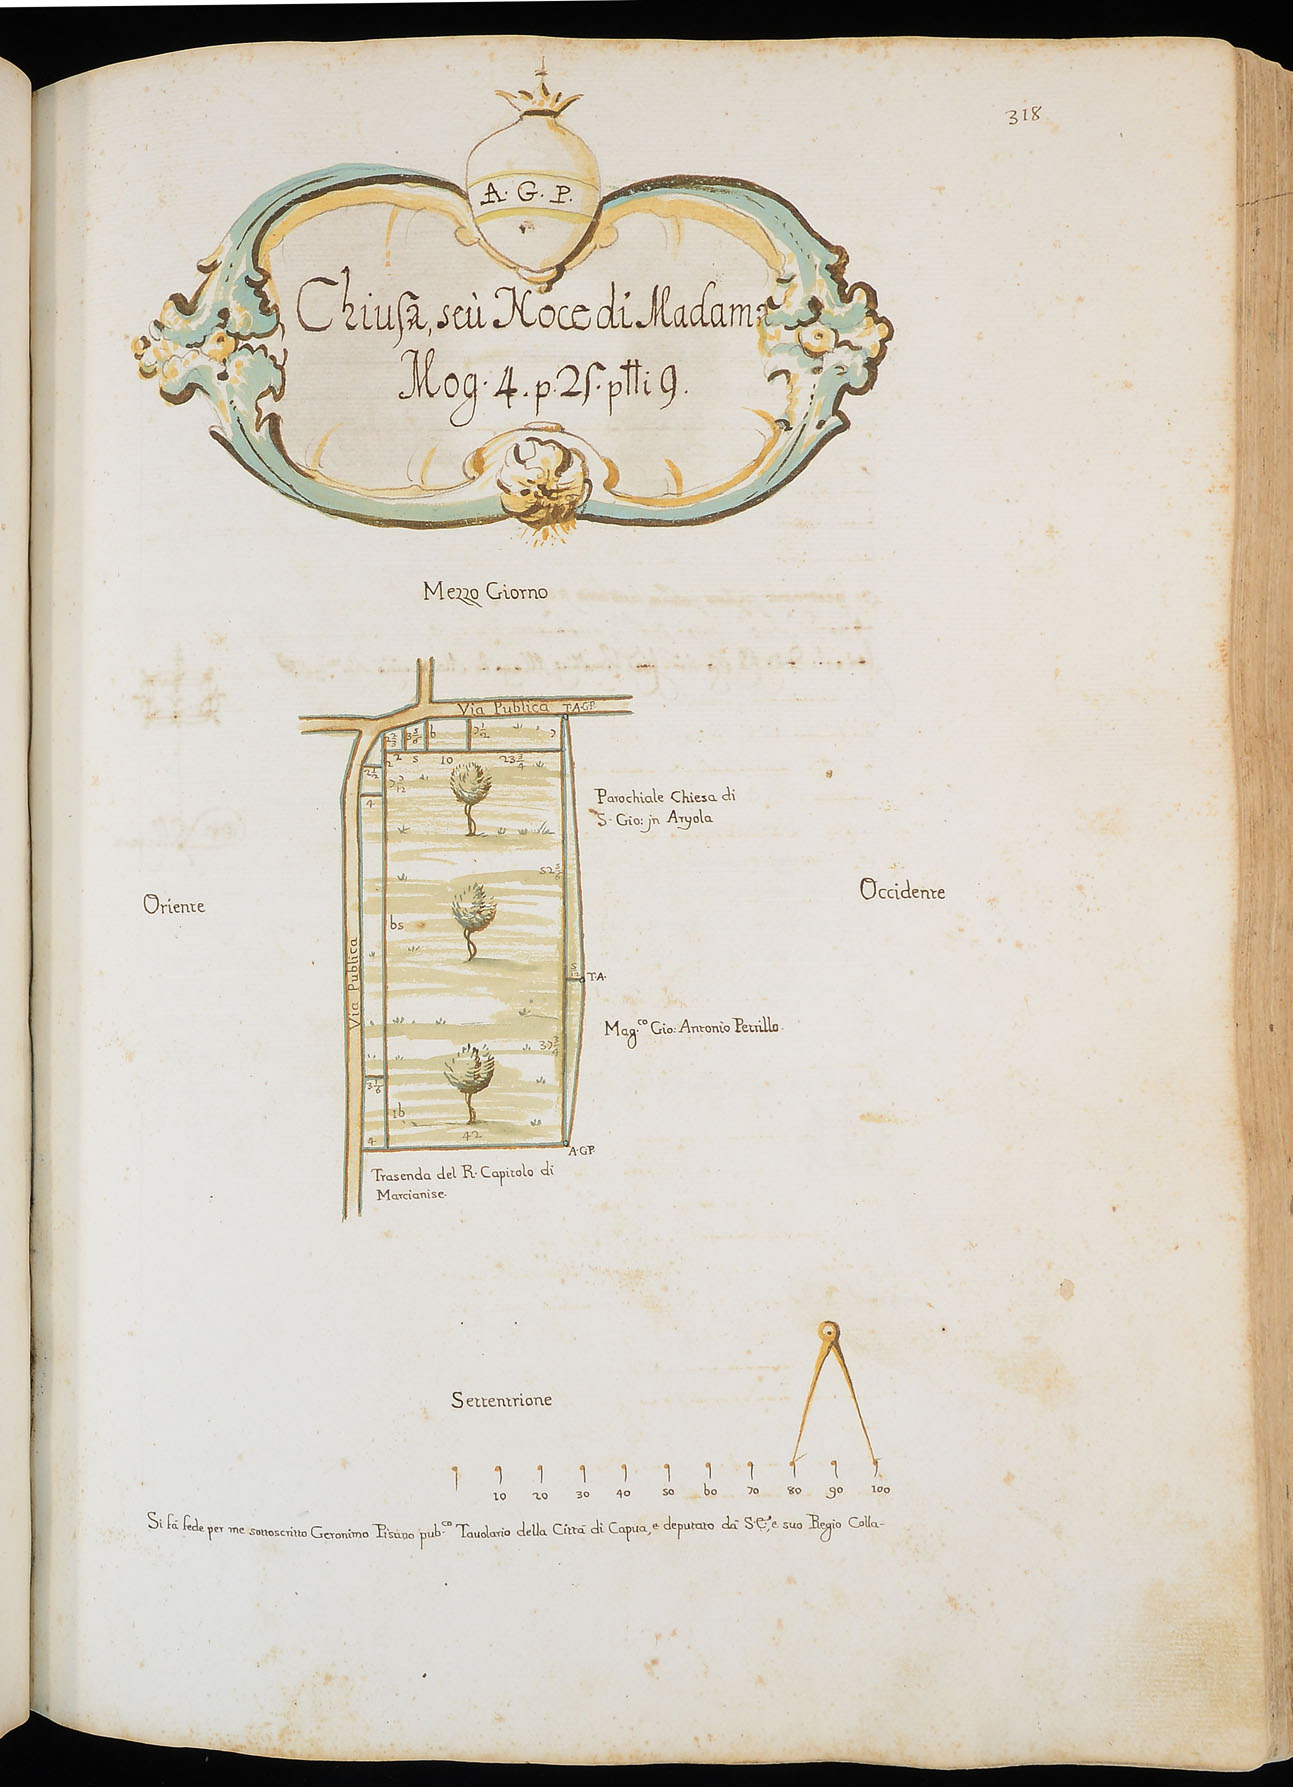 318
A. G. P.
Chiusa, seù Noce di Madama
Mog. 4. p. 25. ptti 9.
Mezzo Giorno
Via Publica T.A.G.P.
2 2/3 3 5/6 6 7 1/2 7
2 2 5 10 23 3/4
2 1/2 7 7/12
4
Parochiale Chiesa di
S. Gio: jn Aryola
52 5/6
Oriente
Occidente
65
Via Publica
5/12 T.A.
Mag.co Gio: Antonio Petrillo.
37 3/4
3 1/6
16
4 42
A.G.P.
Trasenda del R. Capitolo di
Marcianise.
Settentrione
10 20 30 40 50 60 70 80 90 100
Si fà fede per me sottoscritto Geronimo Pisano pub.co Tauolario della Città di Capua, e deputato dà S. E., e suo Regio Colla-